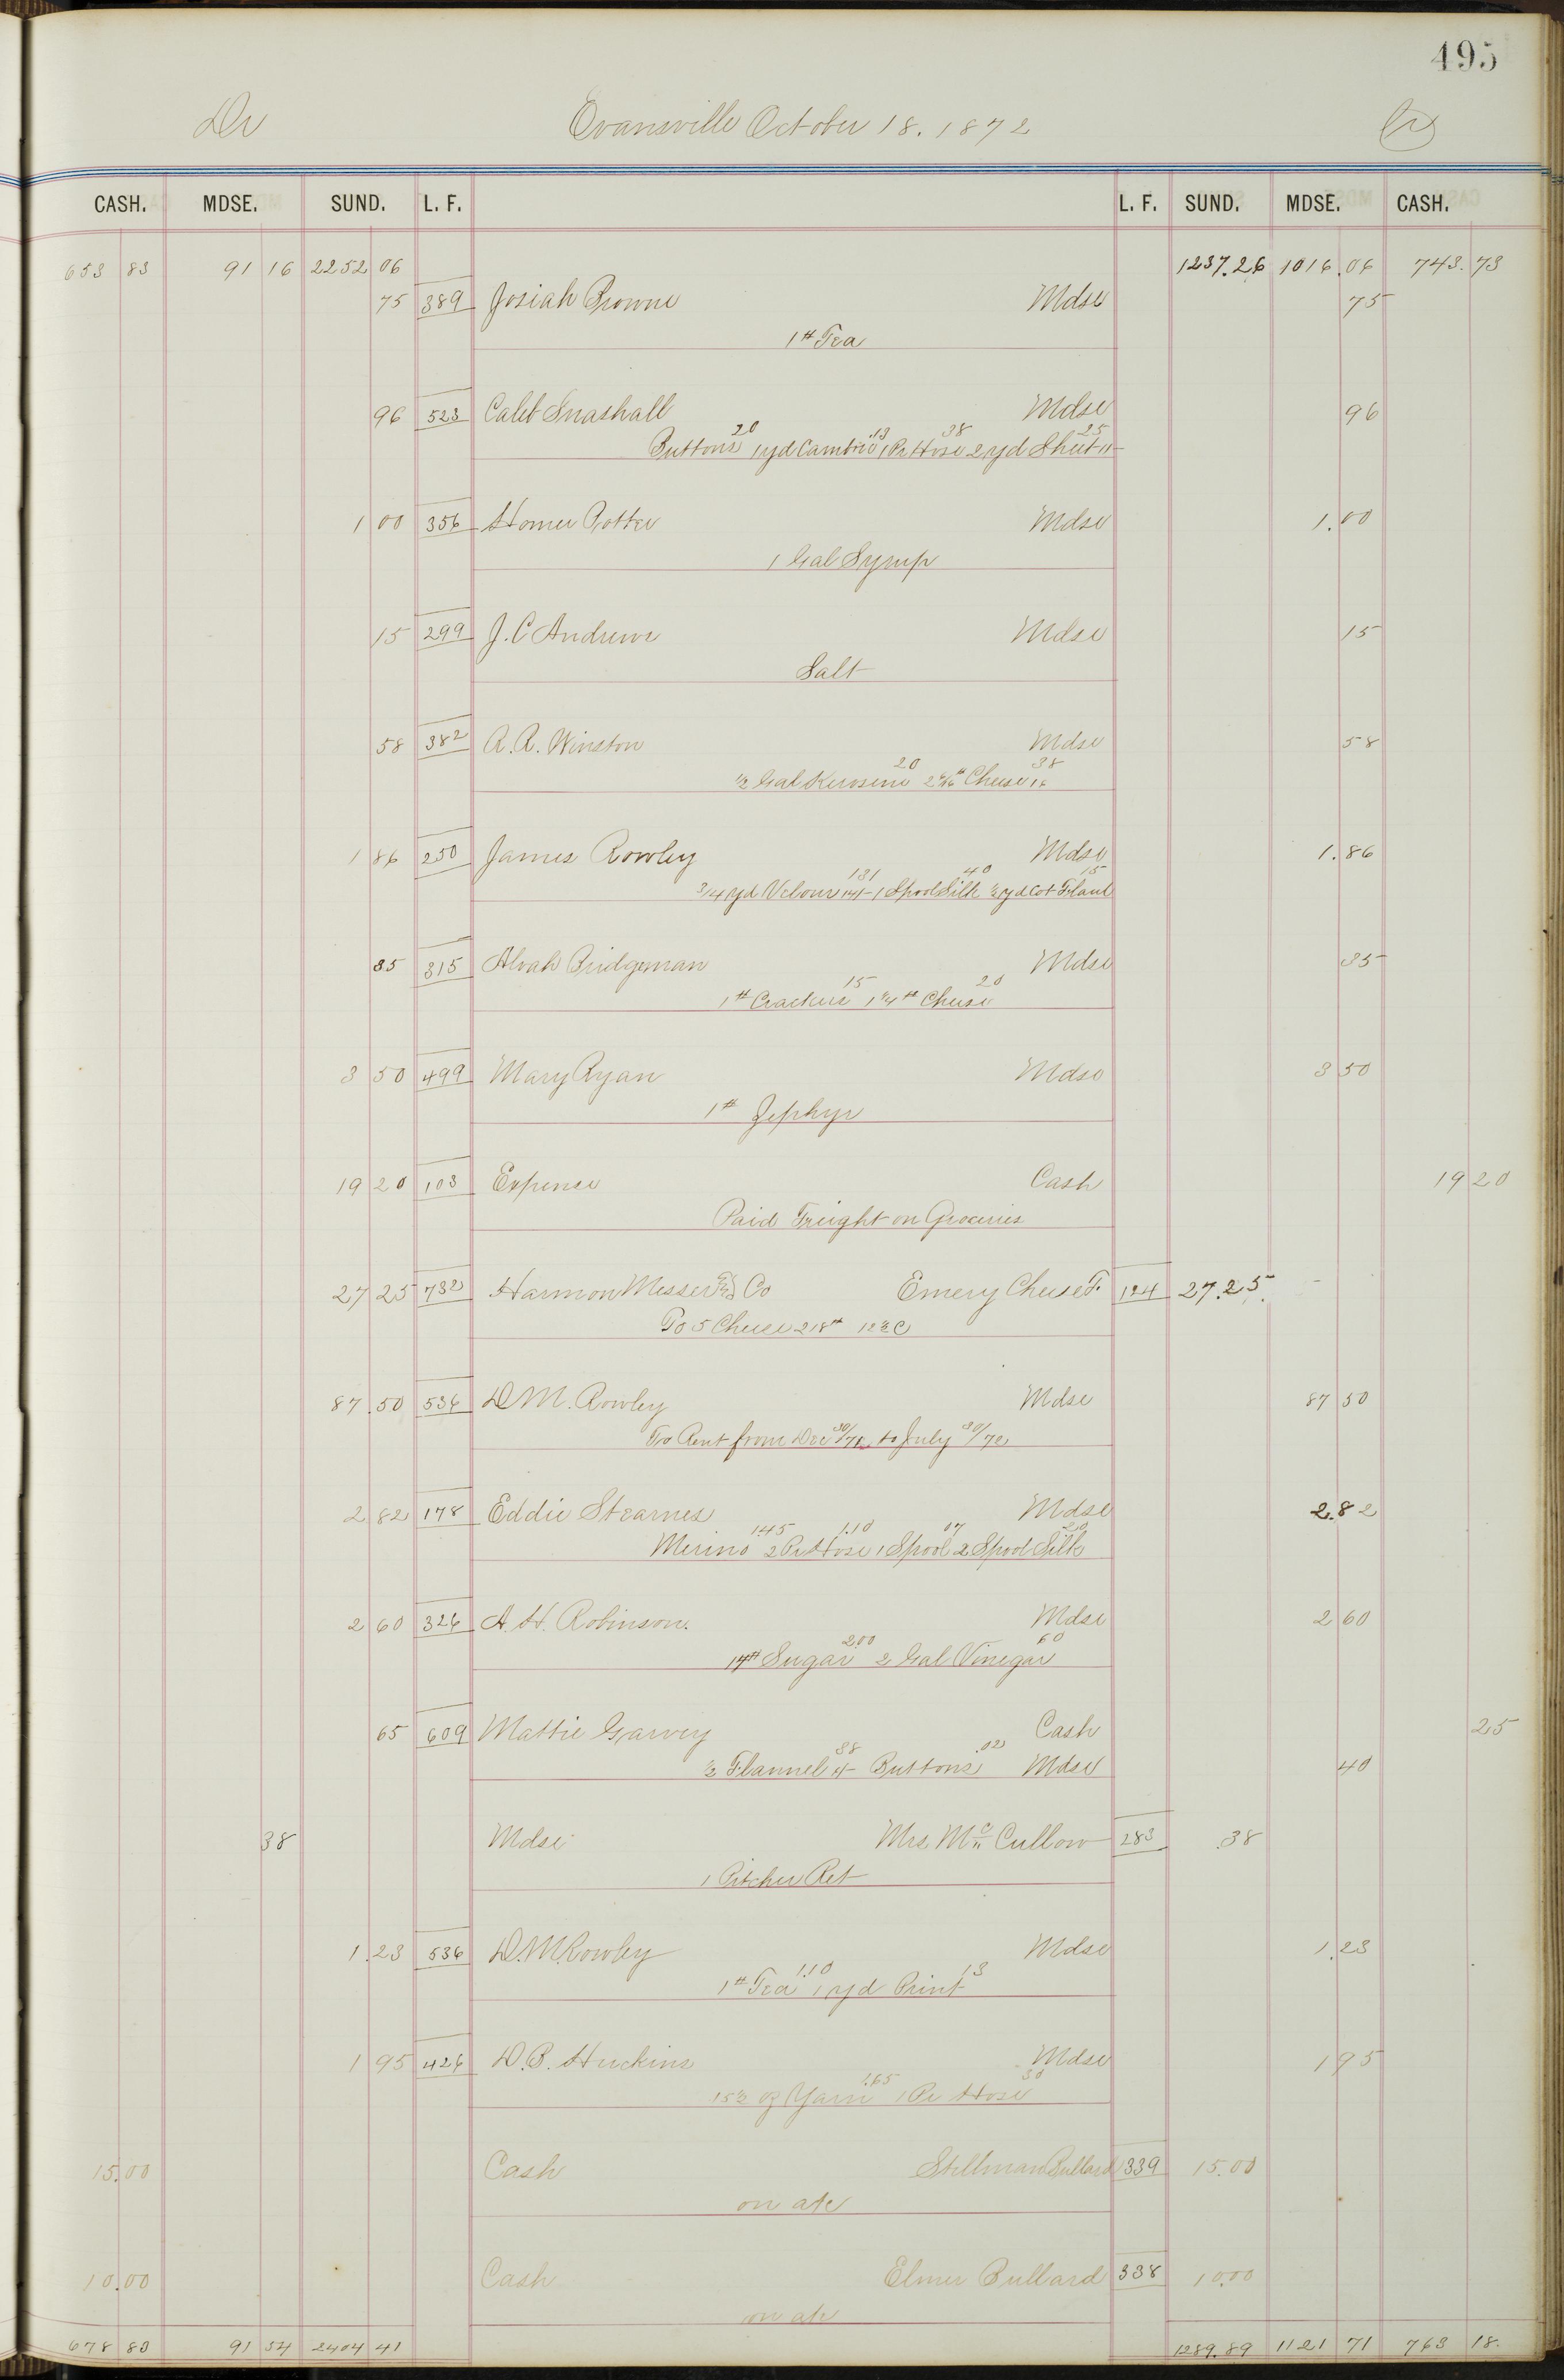 495
Dr Evansville October 18. 1872 Cr
CASH. MDSE. SUND. L. F. L. F. SUND. MDSE. CASH.
653 83 91 16 2252 06 1237.26 1016.06 743.73
75 389 Josiah Browne Mdse 75
1# Tea
96 523 Caleb Snashall Mdse 96
20 .13 38 25
Buttons 1 yd Cambric 1 Pr Hose 2 yd Sheet
1 00 356 Homer Potter Mdse 1.00
1 Gal Syrup
15 299 J. C Andrews Mdse 15
Salt
58 382 A. A. Winston Mdse 58
20 38
½ Gal Kerosene 2 6/16# Cheese 16
1 86 250 James Rowley Mdse 1.86
131 40 15
3/4 yd Velour 14/- 1 Spool Silk ½ yd Cot Flanl
35 315 Alvah Bridgeman Mdse 35
15 20
1# Crackers 1¼# Cheese
3 50 499 Mary Ryan Mdse 3 50
1# Zephyr
19 20 103 Expense Cash 19 20
Paid Freight on Groceries
27 25 732 Harmon Messer & Co Emery Cheese F. 124 27.25
To 5 Cheese 218# 12½C
87.50 536 D M. Rowley Mdse 87 50
To Rent from Dec 30/71 to July 30/72
2 82 178 Eddie Stearnes Mdse 2.82
1.45 1.10 07 .20
Merino 2 Pr Hose 1 Spool 2 Spool Silk
2 60 326 A. H. Robinson. Mdse 2 60
2.00 60
14# Sugar 2 Gal Vinegar
65 609 Mattie Garvey Cash 25
38 .02
½ Flannel Buttons Mdse 40
38 Mdse Mrs Mc Cullow 283 .38
1 Pitcher Ret
1.23 536 D. M. Rowley Mdse 1.23
1.10 13
1# Tea 1 yd Print
1 95 426 D. B. Huckins Mdse 1 95
1.65 30
15½ oz Yarn 1 Pr Hose
15.00 Cash Stillman Bullard 339 15.00
on a/c
10.00 Cash Elmer Bullard 338 10.00
on a/c
678 83 91 54 2404 41 1289.89 1121 71 763 18.